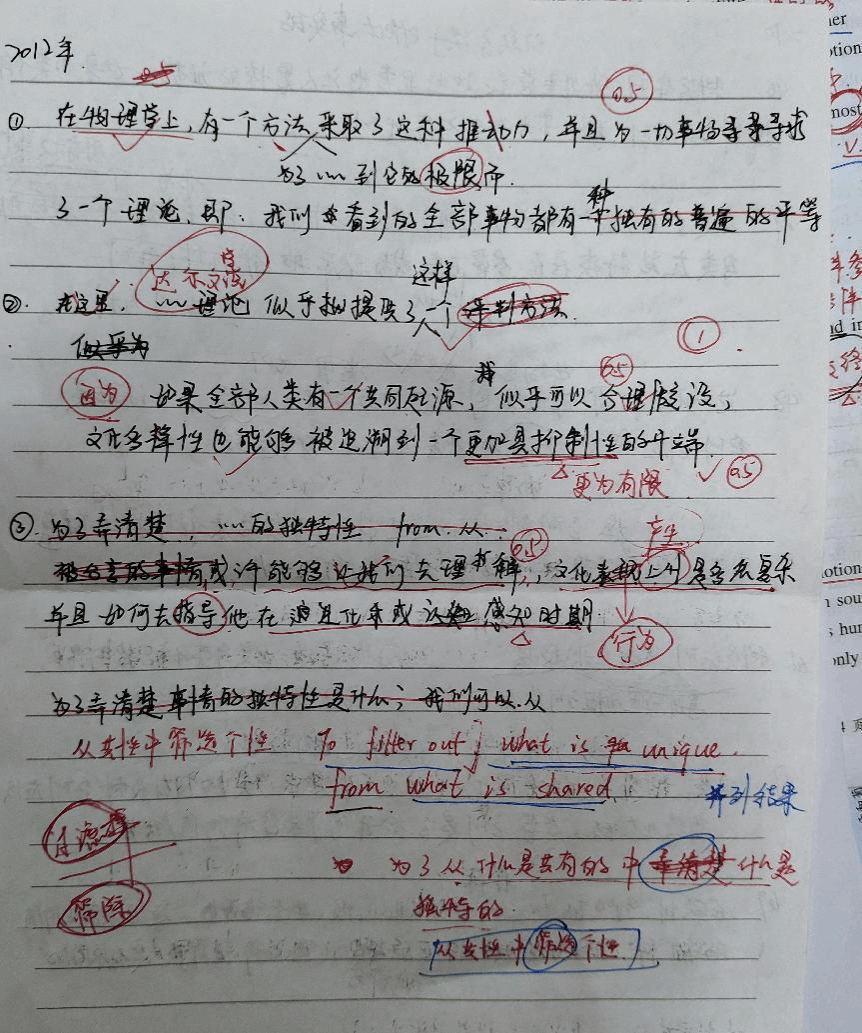 2012年
0.5
0.5
① 在物理学上,有一个方法采取了这种推动力,并且为一切事物寻求
为了……到它的极限而
了一个理论,即:我们看到的全部事物都有一种独有的普遍的平等
达尔文
这样
② 在这里,……理论似乎提供了一个采判方法.
似乎为
①
因为 如果全部人类有一个共同起源,我似乎可以合理假设,
0.5
文化多样性也能够被追溯到一个更加具抑制性的开端.
更为有限
0.5
③ 为了弄清楚,……的独特性 from 从.
产生
0.5
或许能够让我们去理解,文化 上 是多么复杂
并且如何去指导他在 进化系或 感知时期
行为
为了弄清楚事情的独特性是什么;我们可以从
从共性中筛选个性 To filter out what is unique.
from what is shared
并列结果
过滤
为了从什么是共有的中弄清楚什么是
筛除
独特的.
从共性中筛选个性.
er
otion
most
and in
otion
n sou
; hun
only